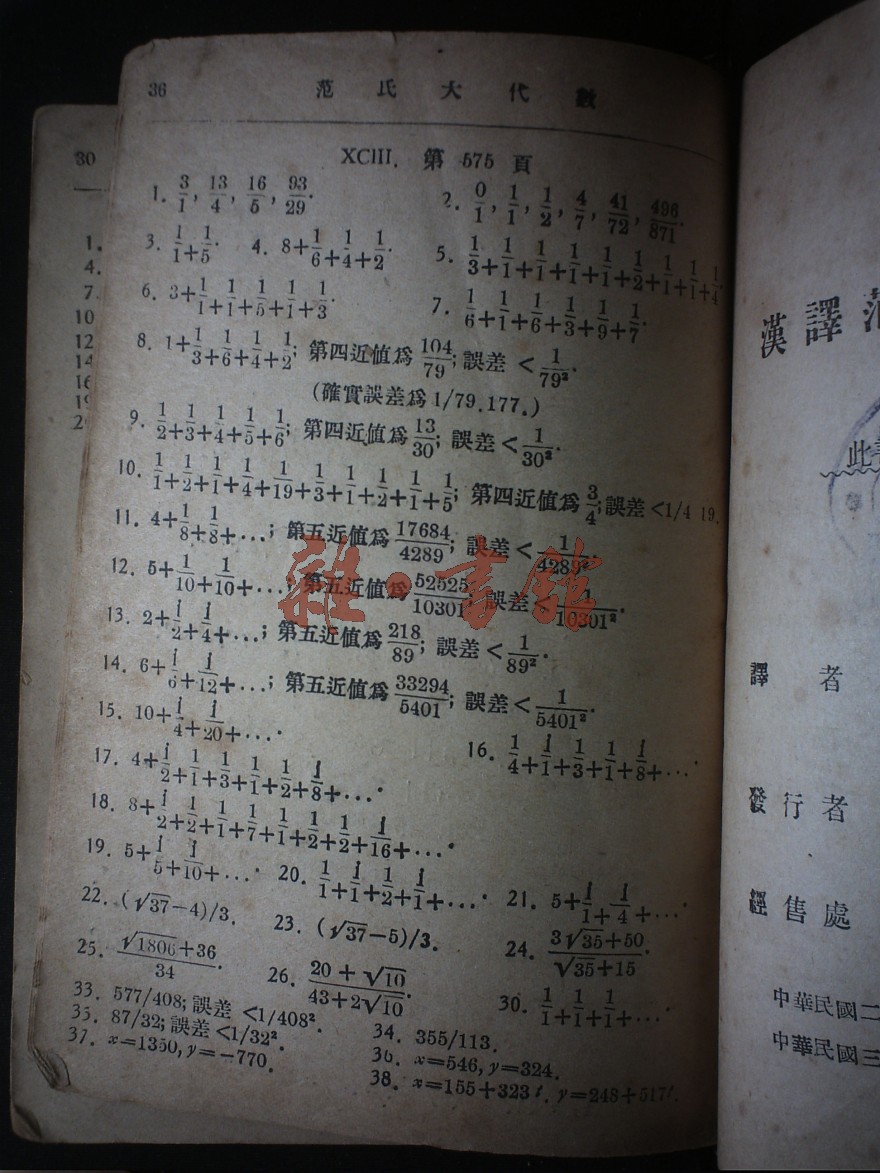 36 范氏大代數
XCIII. 第 575 頁
1. 3/1, 13/4, 16/5, 93/29. 2. 0/1, 1/1, 1/2, 4/7, 41/72, 496/871.
3. 1/1+1/5. 4. 8+1/6+1/4+1/2. 5. 1/3+1/1+1/1+1/1+1/1+1/2+1/1+1/1+1/4
6. 3+1/1+1/1+1/5+1/1+1/3. 7. 1/6+1/1+1/6+1/3+1/9+1/7.
8. 1+1/3+1/6+1/4+1/2; 第四近值爲 104/79; 誤差 < 1/79².
(確實誤差爲 1/79.177.)
9. 1/2+1/3+1/4+1/5+1/6; 第四近值爲 13/30; 誤差 < 1/30².
10. 1/1+1/2+1/1+1/4+1/19+1/3+1/1+1/2+1/1+1/5; 第四近值爲 3/4; 誤差 <1/4 19.
11. 4+1/8+1/8+...; 第五近值爲 17684/4289; 誤差 < 1/4289².
12. 5+1/10+1/10+...; 第五近值爲 52525/10301; 誤差 < 1/10301².
13. 2+1/2+1/4+...; 第五近值爲 218/89; 誤差 < 1/89².
14. 6+1/6+1/12+...; 第五近值爲 33294/5401; 誤差 < 1/5401².
15. 10+1/4+1/20+.... 16. 1/4+1/1+1/3+1/1+1/8+....
17. 4+1/2+1/1+1/3+1/1+1/2+1/8+....
18. 8+1/2+1/2+1/1+1/7+1/1+1/2+1/2+1/16+....
19. 5+1/5+1/10+.... 20. 1/1+1/1+1/2+1/1+.... 21. 5+1/1+1/4+....
22. (√37-4)/3. 23. (√37-5)/3. 24. (3√35+50)/(√35+15).
25. (√1806+36)/34. 26. (20+√10)/(43+2√10). 30. 1/1+1/1+1/1+....
33. 577/408; 誤差 <1/408². 34. 355/113.
35. 87/32; 誤差 <1/32². 36. x=546, y=324.
37. x=1350, y=-770. 38. x=155+323t, y=248+517t.
雜·書館
30
1.
4.
7.
10
12
14
16
19
漢譯范
此
譯者
發行者
經售處
中華民國二
中華民國三